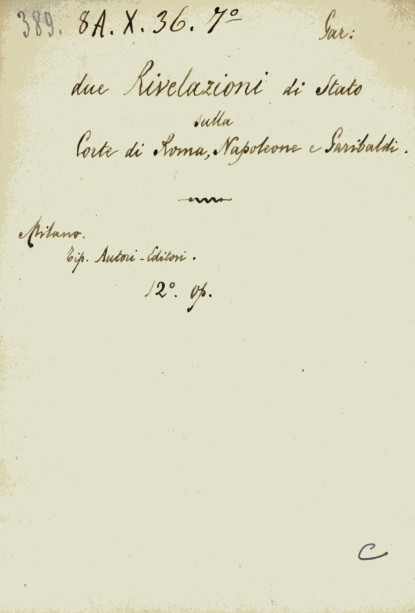 389. 8A. X. 36. 7º Gar:
due Rivelazioni di Stato
sulla
Corte di Roma, Napoleone e Garibaldi.
Milano.
Tip. Autori-Editori.
12º. op.
C